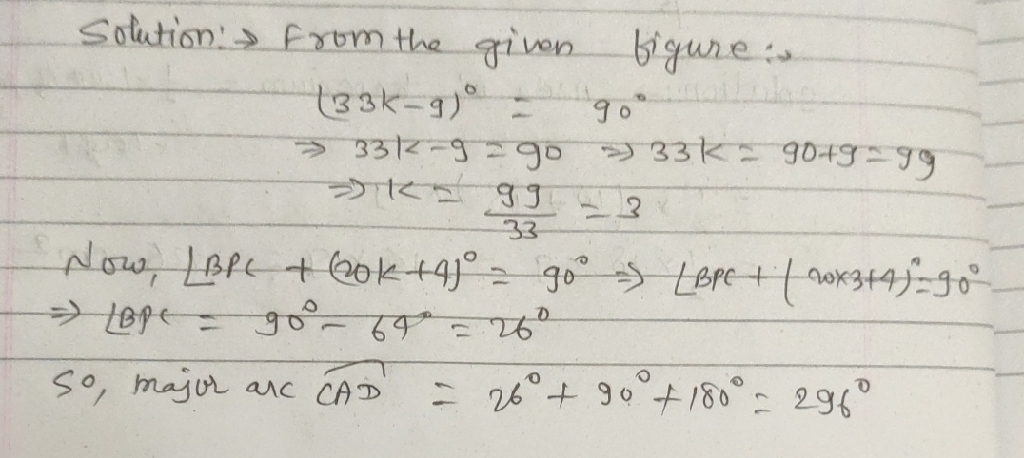 Solution:→ From the given figure:→
(33k-9)° = 90°
⇒ 33k-9 = 90 ⇒ 33k = 90+9 = 99
⇒ k = 99/33 = 3
Now, ∠BPC + (20k+4)° = 90° ⇒ ∠BPC + (20×3+4)° = 90°
⇒ ∠BPC = 90° - 64° = 26°
So, major arc CAD = 26° + 90° + 180° = 296°